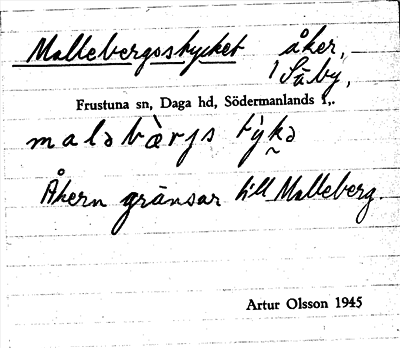 Mallebergsstycket åker,
1 Säby,
Frustuna sn, Daga hd, Södermanlands l,.
Åkern gränsar till Malleberg.
Artur Olsson 1945